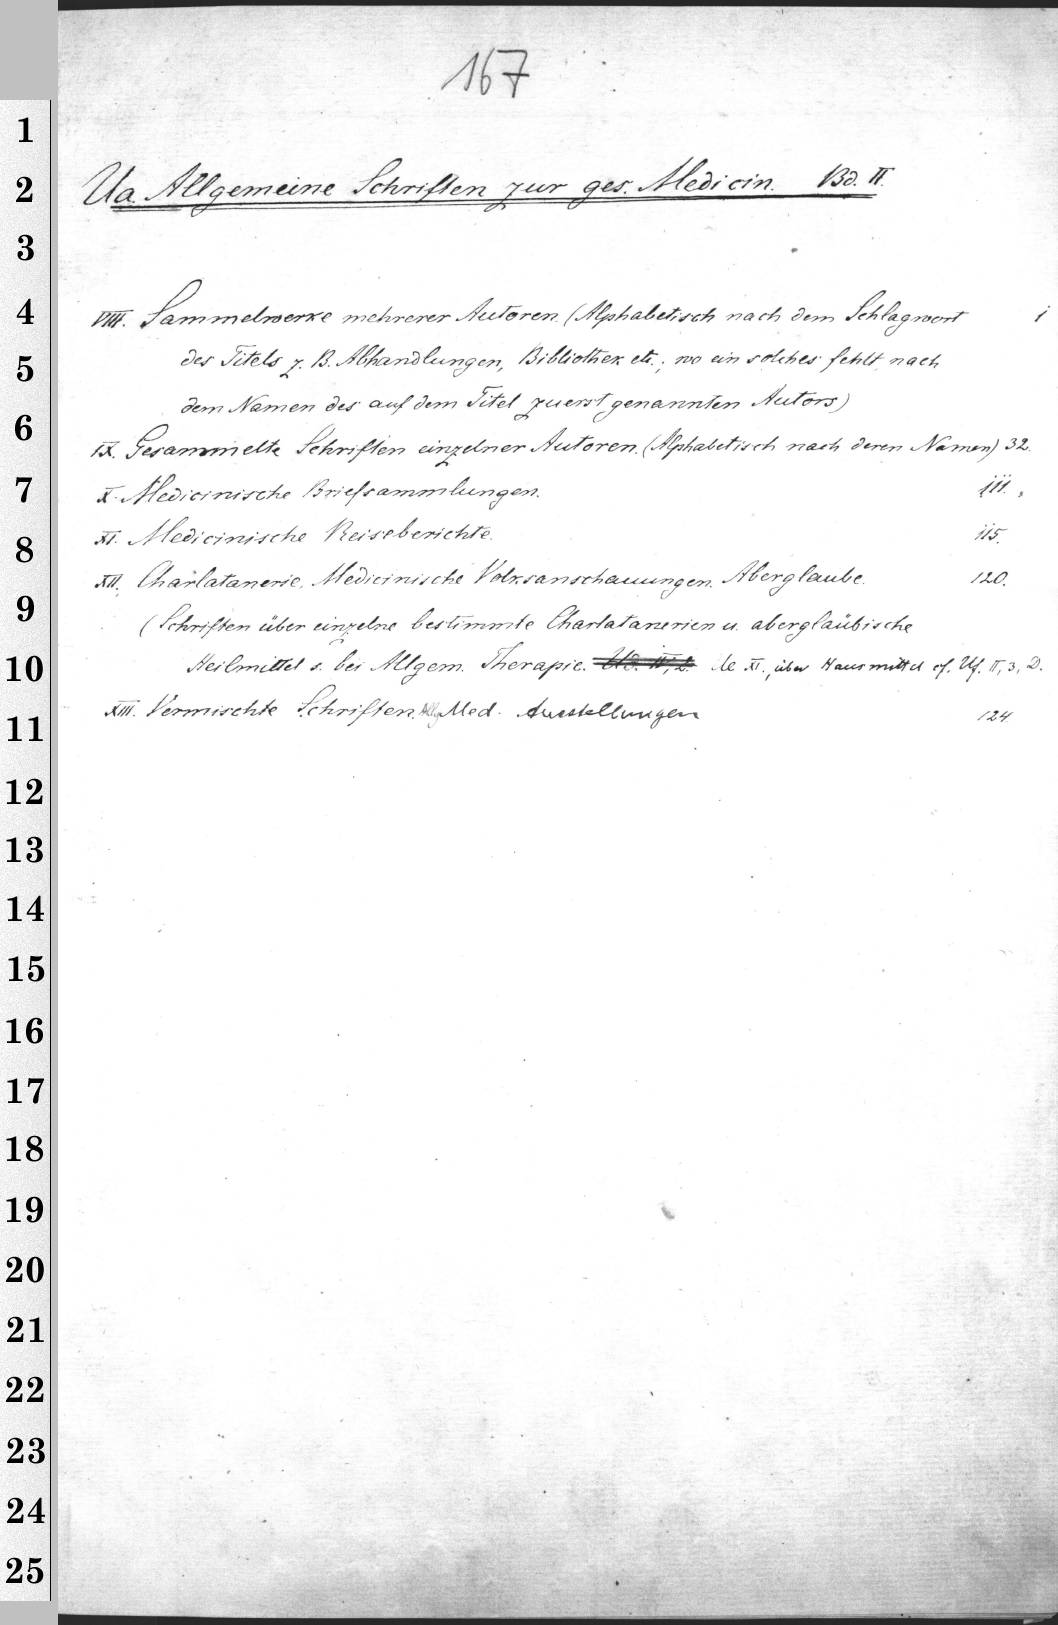 167
Ua. Allgemeine Schriften zur ges. Medicin. Bd. II.
VIII. Sammelwerke mehrerer Autoren. (Alphabetisch nach dem Schlagwort 1
des Titels z. B. Abhandlungen, Bibliothek etc.; wo ein solches fehlt, nach
dem Namen des auf dem Titel zuerst genannten Autors)
IX. Gesammelte Schriften einzelner Autoren. (Alphabetisch nach deren Namen) 32.
X. Medicinische Briefsammlungen. 111.
XI. Medicinische Reiseberichte. 115.
XII. Charlatanerie. Medicinische Volksanschauungen. Aberglaube. 120.
(Schriften über einzelne bestimmte Charlatanerien u. abergläubische
Heilmittel s. bei Allgem. Therapie. Ud. IV, 2. Ue XI., über Hausmittel cf. Uf. II, 3, D.
XIII. Vermischte Schriften. Allg Med. Ausstellungen 124.
1
2
3
4
5
6
7
8
9
10
11
12
13
14
15
16
17
18
19
20
21
22
23
24
25